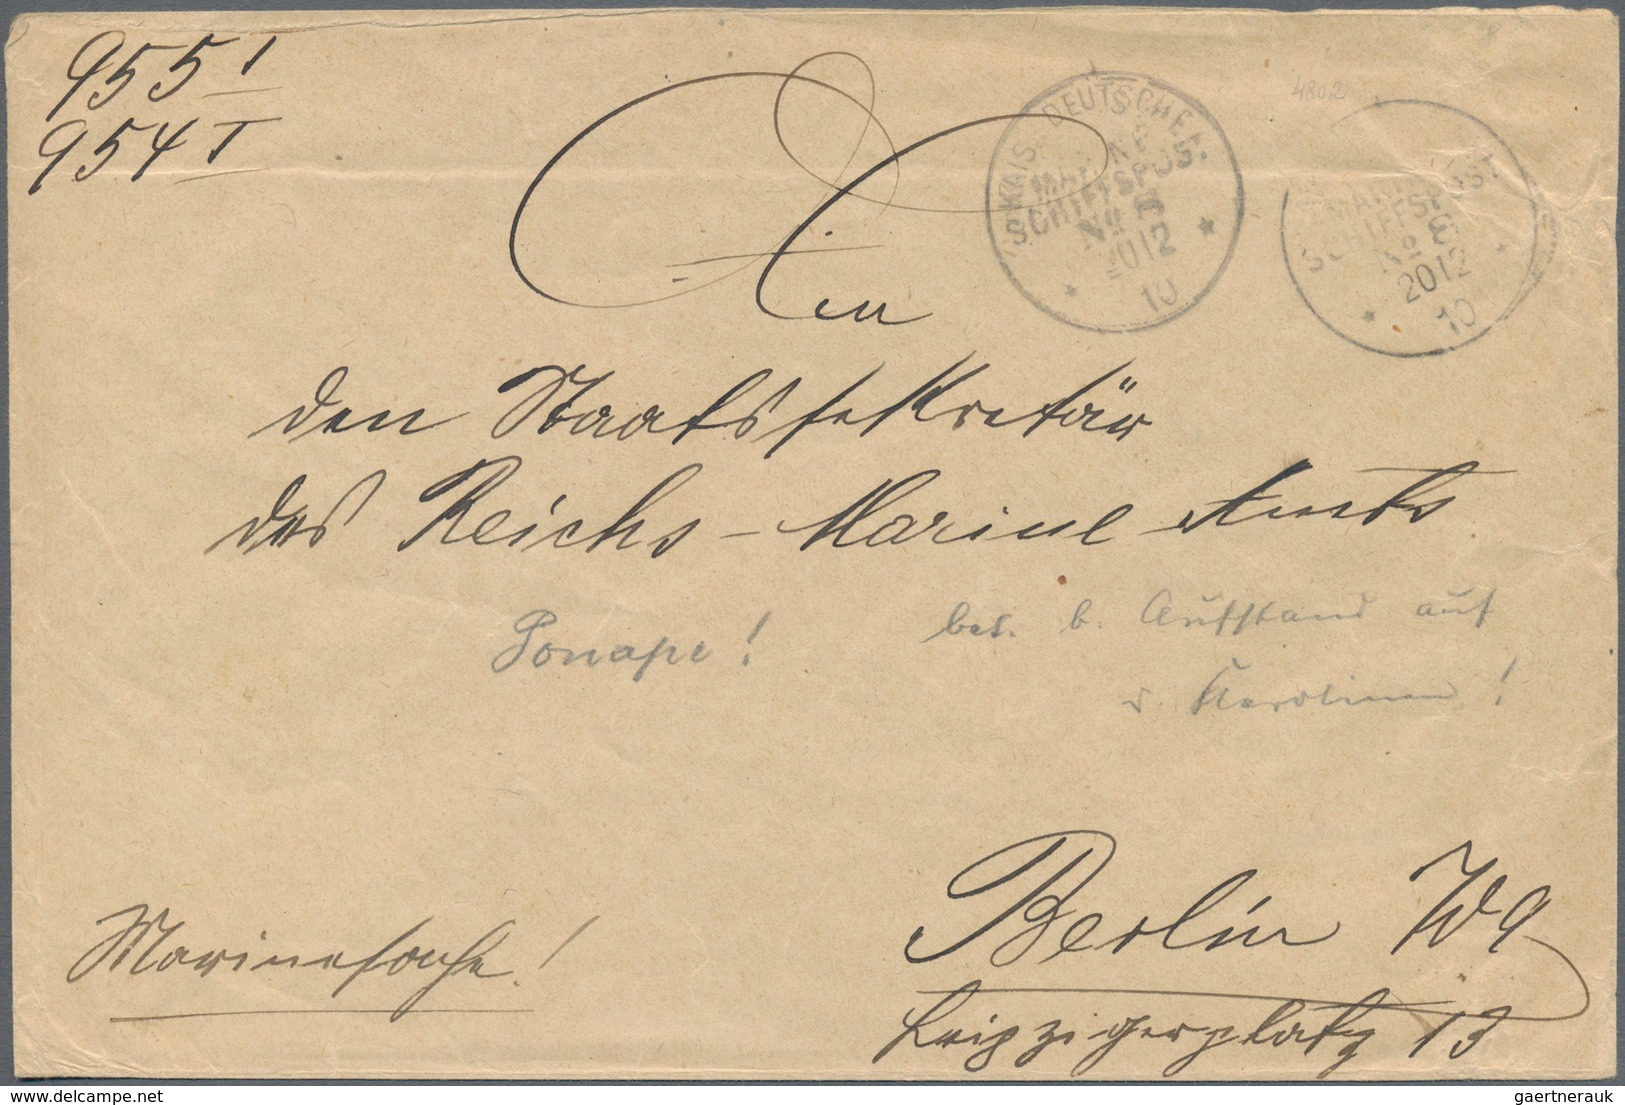 955 I
954 I
KAIS. DEUTSCHE
MARINE
SCHIFFSPOST
No 3
20 12
10
4802
MARINE
SCHIFFSPOST
No 3
20 12
10
An
den Staatssekretär
des Reichs-Marine Amts
Ponape!
bes. b. Aufstand auf
d. Karolinen!
Marinesache!
Berlin W 9
Leipzigerplatz 13
delcampe.net
gaertnerauk